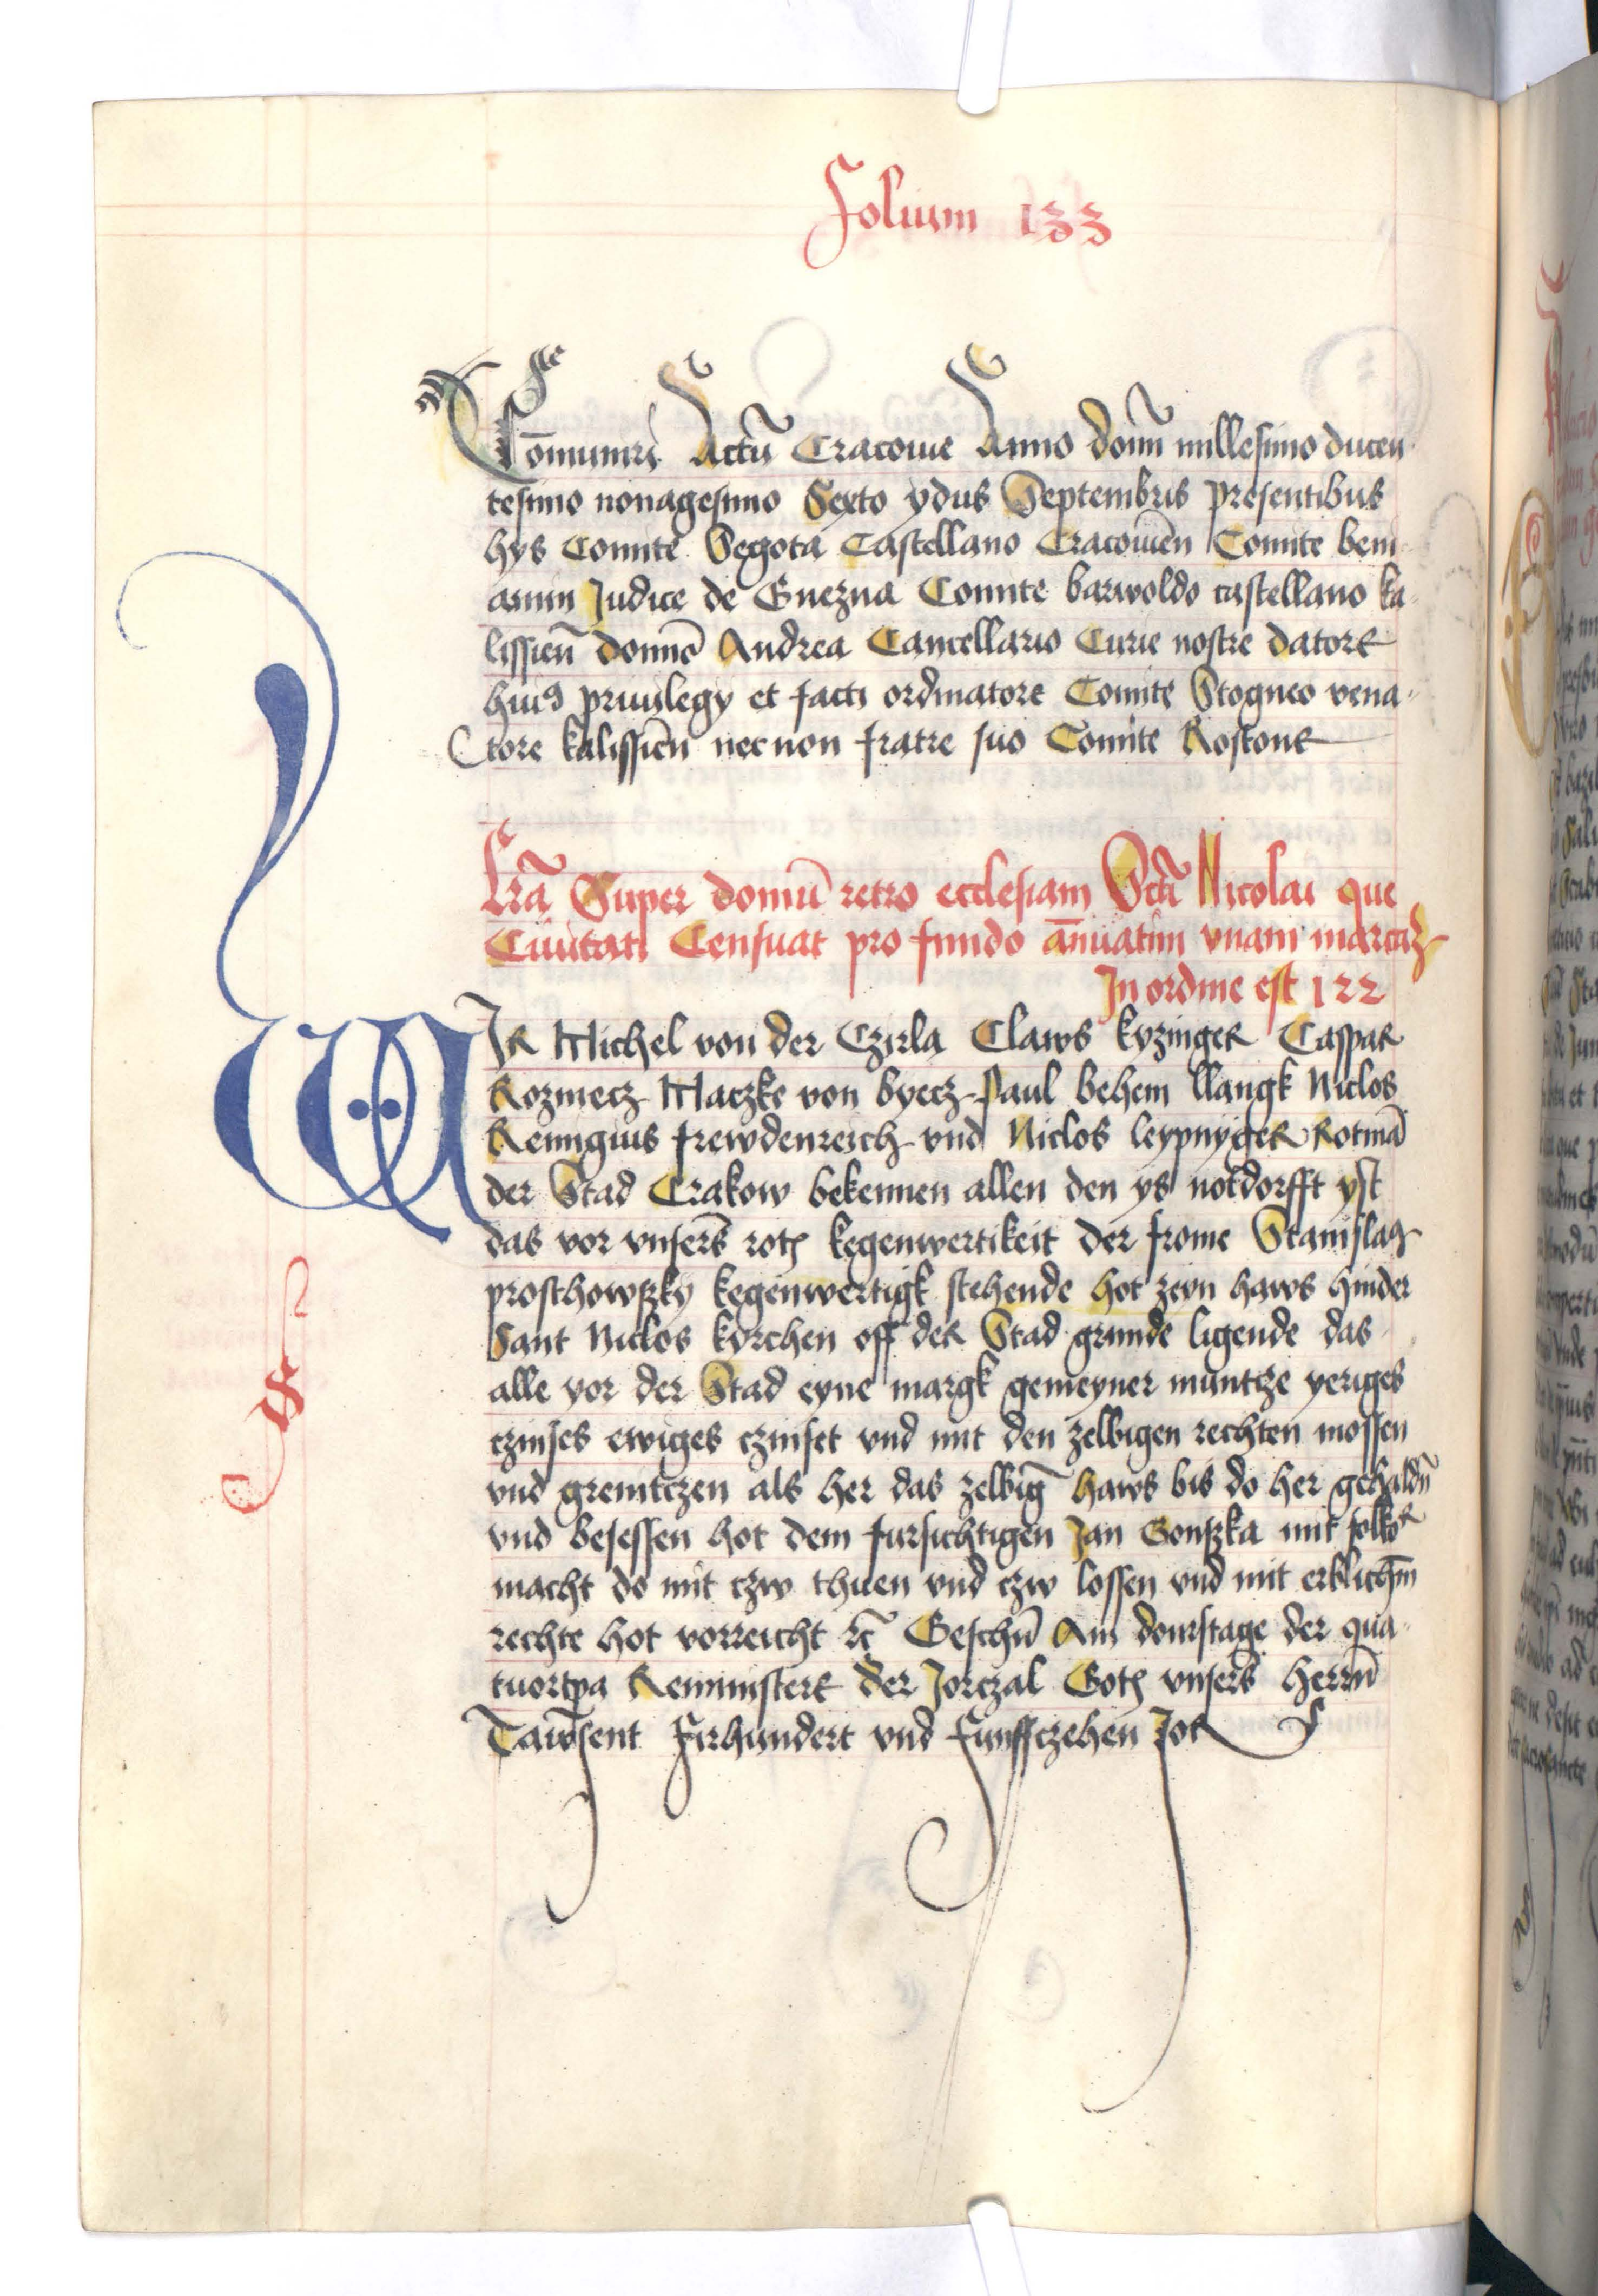 Folium 133
Co͞muniri Actū Cracouie Anno domī millesimo ducen
tesimo nonagesimo Sexto ydus Septembris presentibus
hys Comite Segota Castellano Cracouien̄ Comite beni
amin Judice de Gnezna Comite barwoldo castellano ka
lissien̄ domīo Andrea Cancellario Curie nostre datore
huiꝰ priuilegy et facti ordinatore Comite Stogneo vena
tore kalissien̄ necnon fratre suo Comite Rostone
Lr̄a Super domū retro ecclesiam Sctī Nicolai que
Ciuitati Censuat pro fundo an̄uatim vnam marcaʒ
In ordine est 122
WIR Michel von der Czirla Claws kyzinger Caspar
Rozmecz Maczke von byecz Paul behem llangk Niclos
Remigius frewdenreich vnd Niclos leypnyger Rotmā
der Stad Crakow bekennen allen den ys notdorfft yst
das vor vnsers̄ rotꝭ kegenwertikeit der frome Stanislaꝰ
prosthowßky kegenwertigk stehende hot zeyn haws hinder
Sant Niclos kyrchen off der Stad grunde ligende das
alle yor der Stad eyne margk gemeyner muntcze yeriges
czinses ewiges czinset vnd mit den zelbigen rechten mossen
vnd grenitczen als her das zelbiḡ haws bis do her gehaldn̄
vnd besessen hot dem fursichtigen Jan Gonßka mit solkor
macht do mit czw thuen vnd czw lossen vnd mit erblichm̄
rechte hot vorreicht ꝛc̄ Geschn̄ Am donrstage der qua
tuortp̄a Reministere der Jorczal Gotꝭ vnsers̄ herrn̄
Tawsent Firhundert vnd funffczehen Jor